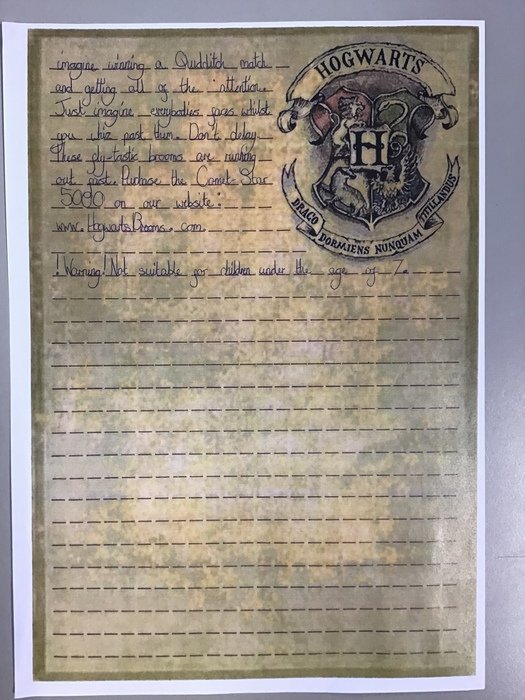 imagine winning a Quidditch match
and getting all of the intention.
Just imagine everybodies faces whilst
you whiz past them. Don't delay.
These fly-tastic brooms are running
out fast. Purchase the Comet-Star
5090 on our website:
www.HogwartsBrooms.com.
! Warning! Not suitable for children under the age of 7.
HOGWARTS
H
DRACO DORMIENS NUNQUAM TITILLANDUS